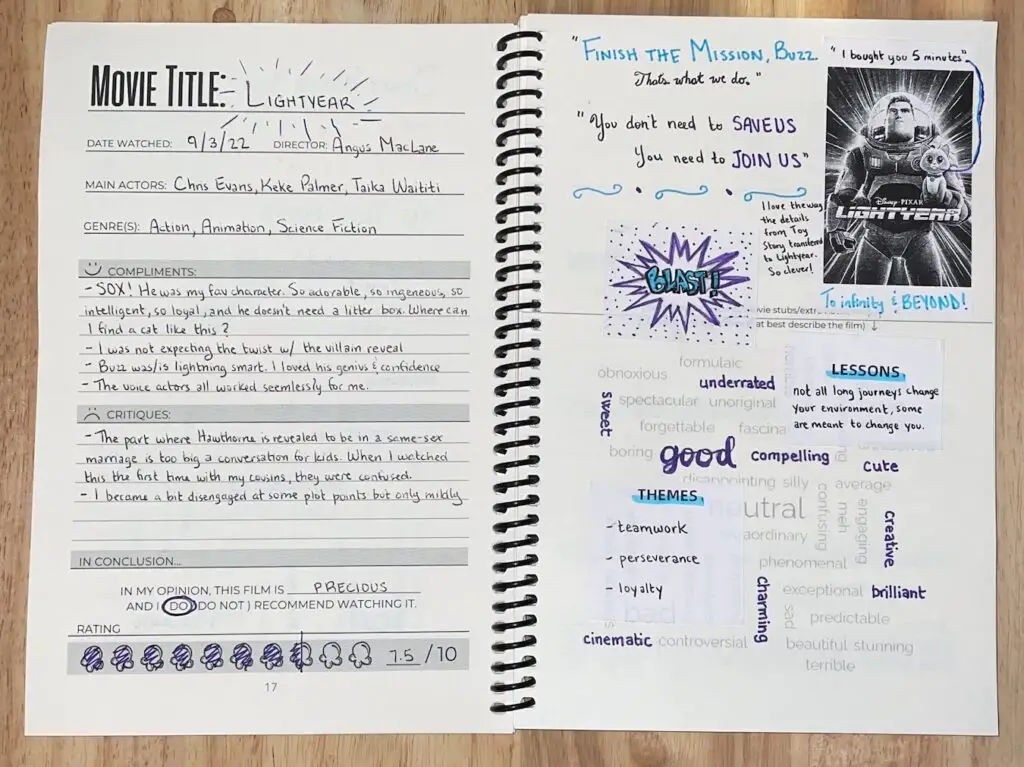 MOVIE TITLE: LIGHTYEAR
DATE WATCHED: 9/3/22 DIRECTOR: Angus MacLane
MAIN ACTORS: Chris Evans, Keke Palmer, Taika Waititi
GENRE(S): Action, Animation, Science Fiction
COMPLIMENTS:
- SOX! He was my fav character. So adorable, so ingeneous, so
intelligent, so loyal, and he doesn't need a litter box. Where can
I find a cat like this?
- I was not expecting the twist w/ the villain reveal
- Buzz was/is lightning smart. I loved his genius & confidence
- The voice actors all worked seemlessly for me.
CRITIQUES:
- The part where Hawthorne is revealed to be in a same-sex
marriage is too big a conversation for kids. When I watched
this the first time with my cousins, they were confused.
- I became a bit disengaged at some plot points but only mildly
IN CONCLUSION...
IN MY OPINION, THIS FILM IS PRECIOUS
AND I (DO/DO NOT) RECOMMEND WATCHING IT.
RATING
7.5 / 10
17
"FINISH THE MISSION, BUZZ
Thats what we do."
"You don't need to SAVE US
You need to JOIN US"
"I bought you 5 minutes"
Disney PIXAR
LIGHTYEAR
I love the way
the details
from Toy
Story transfered
to Lightyear.
So clever!
To infinity & BEYOND!
BLAST!
vie stubs/ext
at best describe the film) ↓
formulaic
obnoxious underrated
sweet
spectacular unoriginal
forgettable fascina
boring good compelling
cute
disappointing silly average
LESSONS
not all long journeys change
your environment, some
are meant to change you.
THEMES
- teamwork
- perseverance
- loyalty
utral
confusing
meh
engaging
creative
aordinary
phenomenal
charming
exceptional brilliant
sad
predictable
bad
cinematic controversial
beautiful stunning
terrible